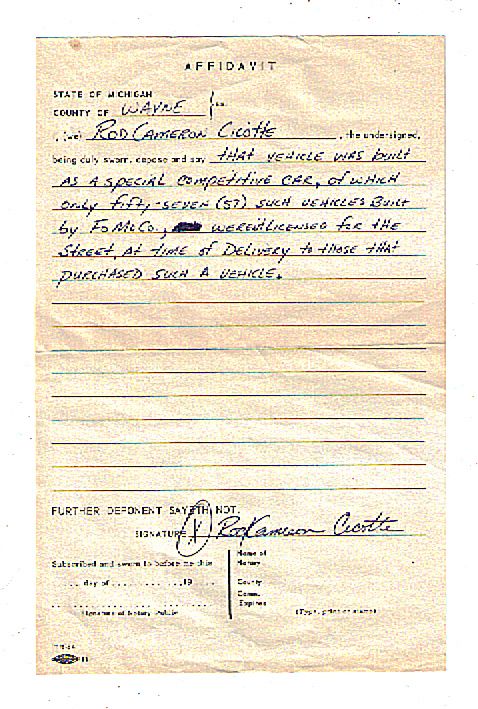 AFFIDAVIT
STATE OF MICHIGAN
COUNTY OF WAYNE } ss.
I, (we) ROD CAMERON CICOTTE, the undersigned,
being duly sworn, depose and say THAT VEHICLE WAS BUILT
AS A SPECIAL COMPETITIVE CAR, OF WHICH
ONLY FIFTY-SEVEN (57) SUCH VEHICLES BUILT
by FOMOCO, WEREN'T LICENSED FOR THE
STREET, AT TIME OF DELIVERY TO THOSE THAT
PURCHASED SUCH A VEHICLE.
FURTHER DEPONENT SAYETH NOT.
SIGNATURE X Rod Cameron Cicotte
Subscribed and sworn to before me this
Name of
Notary
day of 19
County
Comm.
Expires
Signature of Notary Public
(Type, print or stamp)